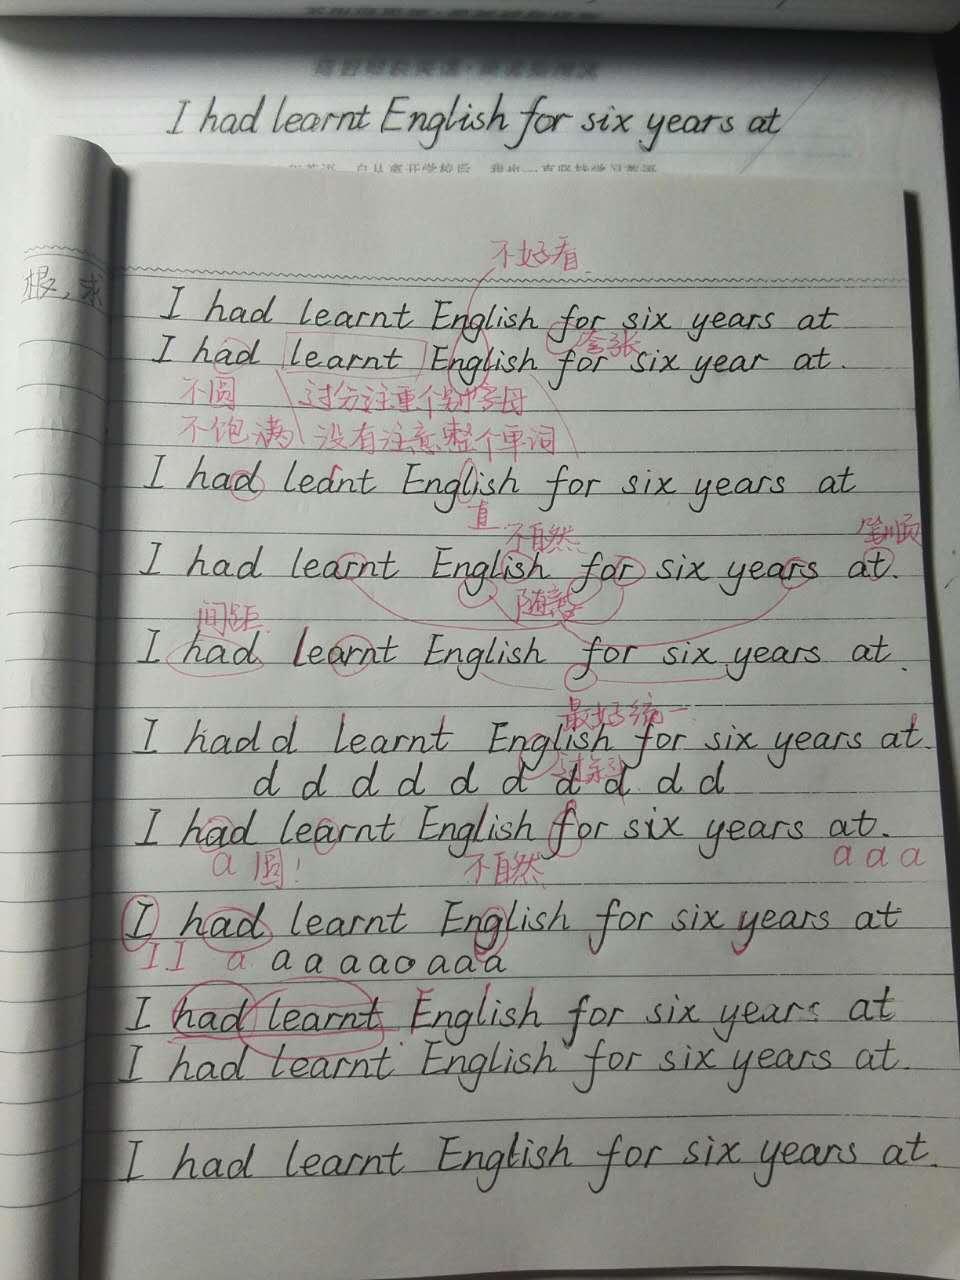 I had learnt English for six years at
不好看
根，求
I had learnt English for six years at
夸张
I had learnt English for six year at.
不圆
过分注重个别字母
不饱满
没有注意整个单词
I had leant English for six years at
直
不自然
笔顺
I had learnt English for six years at.
随意
间距
I had learnt English for six years at.
最好统一
I hadd learnt English for six years at.
d d d d d d d d d d
I had learnt English for six years at.
a 圆！
不自然
a a a
I had learnt English for six years at
I I a a a a a o a a a
I had learnt English for six years at
I had learnt English for six years at.
I had learnt English for six years at.